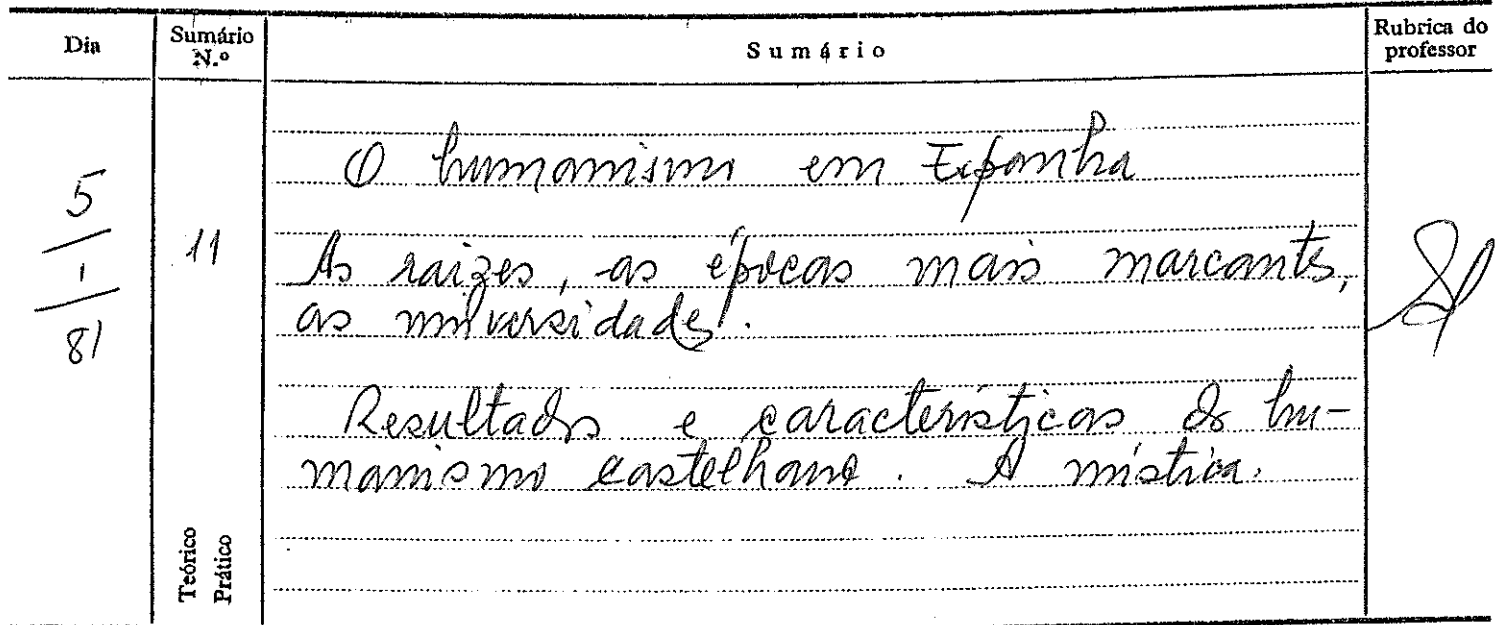 Dia
Sumário N.º
Sumário
Rubrica do professor
5/1/81
11
O humanismo em Espanha
As raizes, as épocas mais marcantes,
as universidades.
Resultados e características do hu-
manismo castelhano. A mística.
Teórico
Prático